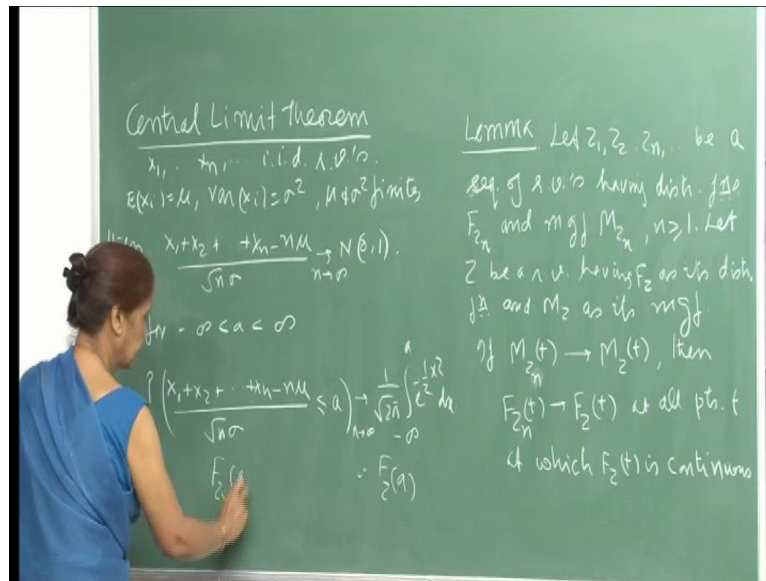 Central Limit Theorem
x₁, .. xₙ, ... i.i.d. r.v's.
E(xᵢ)=μ, Var(xᵢ)=σ², μ & σ² finite,
x₁+x₂+ ... +xₙ-nμ / √n σ → n→∞ N(0,1).
for -∞ < a < ∞
P(x₁+x₂+ ... +xₙ-nμ / √n σ ≤ a) → n→∞ 1/√2π ∫ -∞ a e^-½x² dx
F_Z = F_Z(a)
Lemma. Let Z₁, Z₂ .. Zₙ, .. be a
seq. of r.v.'s having distn. fn
F_Zₙ and mgf M_Zₙ, n≥1. Let
Z be a r.v. having F_Z as its distn.
fn and M_Z as its mgf.
If M_Zₙ(t) → M_Z(t), then
F_Zₙ(t) → F_Z(t) at all pts. t
at which F_Z(t) is continuous